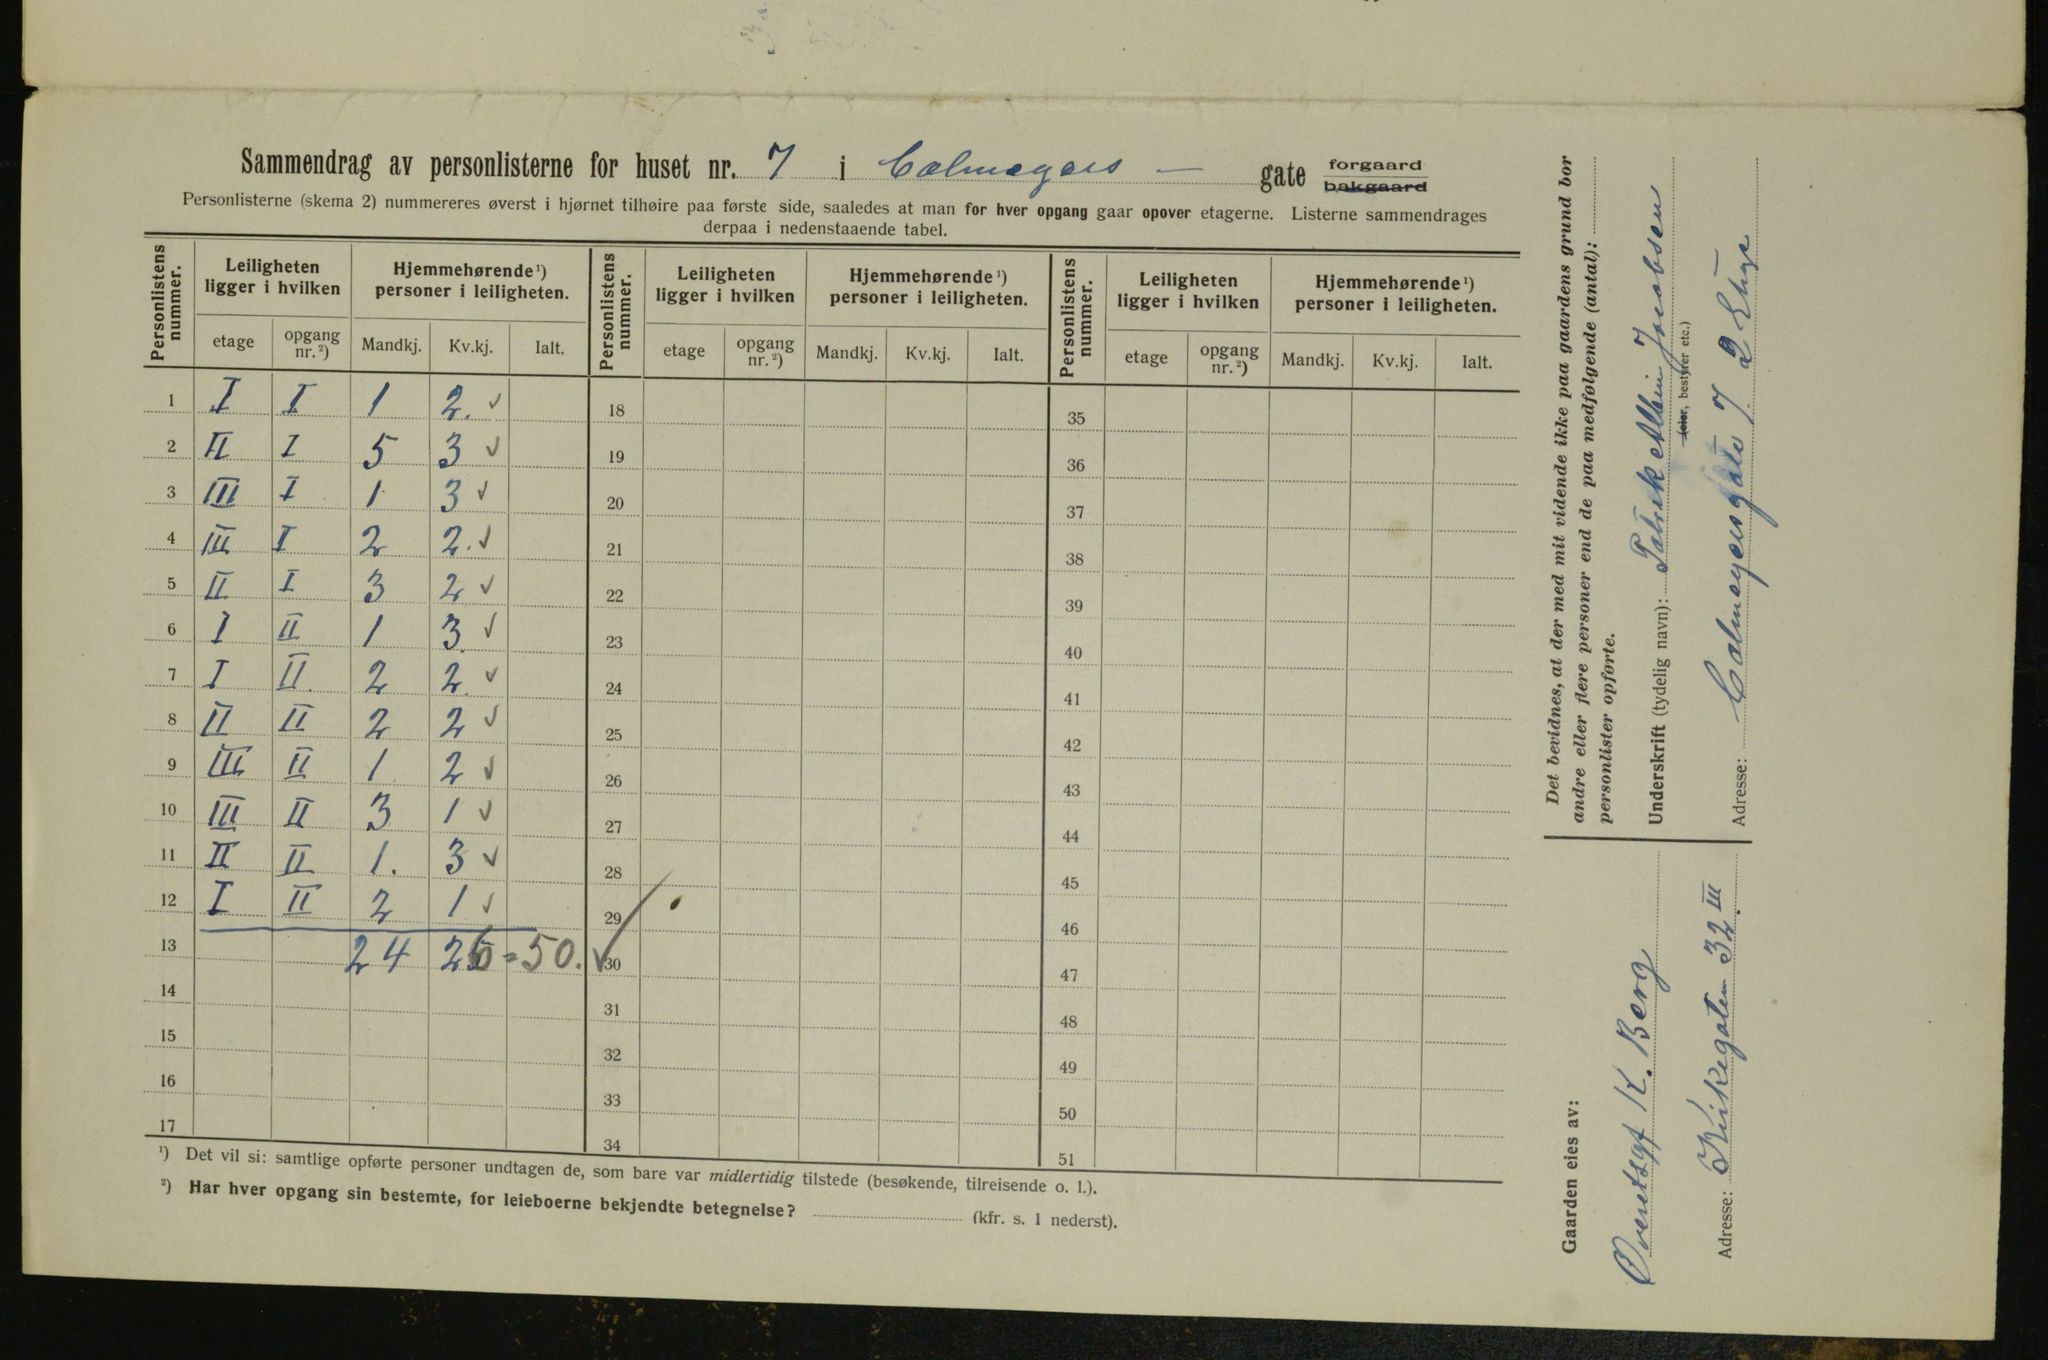 Sammendrag av personlisterne for huset nr. 7 i Calmeyers — gate forgaard bakgaard
Personlisterne (skema 2) nummereres øverst i hjørnet tilhøire paa første side, saaledes at man for hver opgang gaar opover etagerne. Listerne sammendrages
derpaa i nedenstaaende tabel.
Personlistens nummer. Leiligheten ligger i hvilken Hjemmehørende ¹) personer i leiligheten. Personlistens nummer. Leiligheten ligger i hvilken Hjemmehørende ¹) personer i leiligheten. Personlistens nummer. Leiligheten ligger i hvilken Hjemmehørende ¹) personer i leiligheten.
etage opgang nr. ²) Mandkj. Kv.kj. Ialt. etage opgang nr. ²) Mandkj. Kv.kj. Ialt. etage opgang nr. ²) Mandkj. Kv.kj. Ialt.
1 I I 1 2. ✓ 18 35
2 II I 5 3 ✓ 19 36
3 III I 1 3 ✓ 20 37
4 III I 2 2. ✓ 21 38
5 II I 3 2 ✓ 22 39
6 I II 1 3. ✓ 23 40
7 I II. 2 2. ✓ 24 41
8 II II 2 2 ✓ 25 42
9 III II 1 2 ✓ 26 43
10 III II 3 1 ✓ 27 44
11 II II 1. 3 ✓ 28 45
12 I II 2 1 ✓ 29 46
13 24 26 = 50. ✓ 30 47
14 31 48
15 32 49
16 33 50
17 34 51
¹) Det vil si: samtlige opførte personer undtagen de, som bare var midlertidig tilstede (besøkende, tilreisende o. l.).
²) Har hver opgang sin bestemte, for leieboerne bekjendte betegnelse? (kfr. s. 1 nederst).
Det bevidnes, at der med mit vidende ikke paa gaardens grund bor
andre eller flere personer end de paa medfølgende (antal):
personlister opførte.
Underskrift (tydelig navn): Patrik Albin Jacobsen
(eier, bestyrer etc.)
Adresse: Calmeyersgate 7. 2 Etage
Gaarden eies av:
K. Berg
Adresse: Kirkegaten 32 III